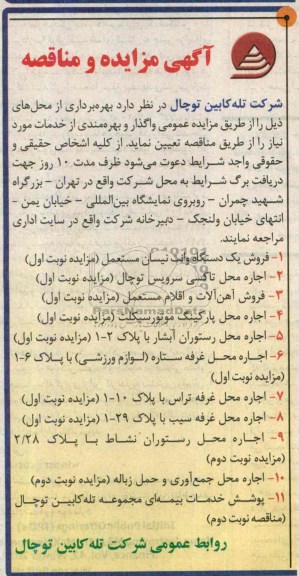 آگهی مزایده و مناقصه
شرکت تله‌کابین توچال در نظر دارد بهره‌برداری از محل‌های
ذیل را از طریق مزایده عمومی واگذار و بهره‌مندی از خدمات مورد
نیاز را از طریق مناقصه تعیین نماید. از کلیه اشخاص حقیقی و
حقوقی واجد شرایط دعوت می‌شود ظرف مدت ۱۰ روز جهت
دریافت برگ شرایط به محل شرکت واقع در تهران - بزرگراه
شهید چمران - روبروی نمایشگاه بین‌المللی - خیابان یمن -
انتهای خیابان ولنجک - دبیرخانه شرکت واقع در سایت اداری
مراجعه نمایند.
۱- فروش یک دستگاه وانت نیسان مستعمل (مزایده نوبت اول)
۲- اجاره محل تاکسی سرویس توچال (مزایده نوبت اول)
۳- فروش آهن‌آلات و اقلام مستعمل (مزایده نوبت اول)
۴- اجاره محل پارکینگ موتورسیکلت (مزایده نوبت اول)
۵- اجاره محل رستوران آبشار با پلاک ۲-۱ (مزایده نوبت اول)
۶- اجاره محل غرفه ستاره (لوازم ورزشی) با پلاک ۶-۱
(مزایده نوبت اول)
۷- اجاره محل غرفه تراس با پلاک ۱۰-۱ (مزایده نوبت اول)
۸- اجاره محل غرفه سیب با پلاک ۲۹-۱ (مزایده نوبت اول)
۹- اجاره محل رستوران نشاط با پلاک ۲/۲۸
(مزایده نوبت دوم)
۱۰- اجاره محل جمع‌آوری و حمل زباله (مزایده نوبت دوم)
۱۱- پوشش خدمات بیمه‌ای مجموعه تله‌کابین توچال
(مناقصه نوبت دوم)
روابط عمومی شرکت تله کابین توچال